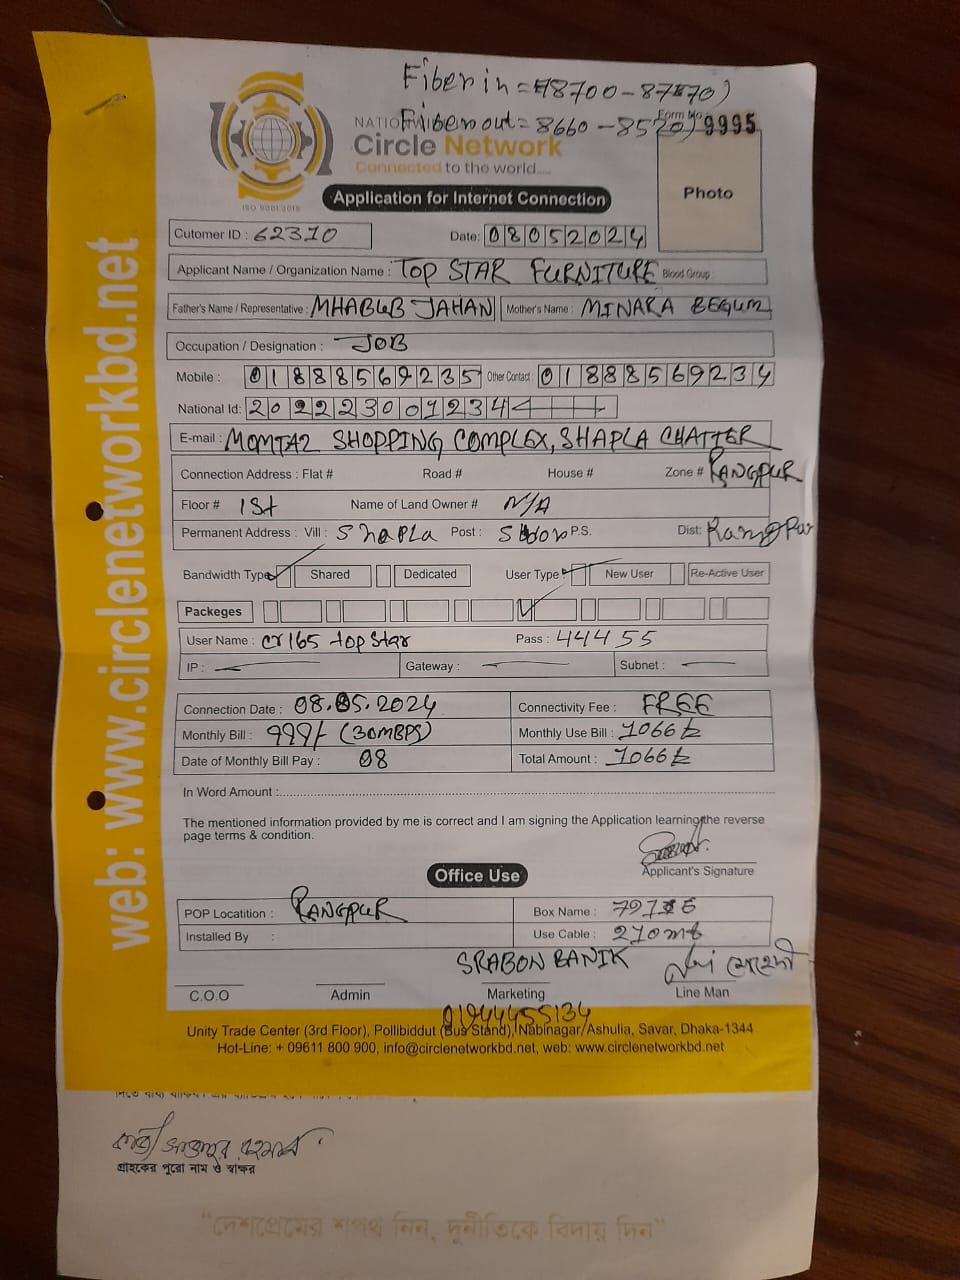 Fiber in = (8700 - 8770)
Fiber out = 8660 - 8520)
Form No 9995
Circle Network
Connected to the world.....
ISO 9001:2015
Application for Internet Connection
Photo
Cutomer ID : 62310
Date: 08052024
Applicant Name / Organization Name : TOP STAR FURNITURE Blood Group
Father's Name / Representative : MHABUB JAHAN Mother's Name : MINARA BEGUM
Occupation / Designation : JOB
Mobile : 01888569235 Other Contact : 01888569234
National Id: 2022230 1234
E-mail : MOMTAZ SHOPPING COMPLEX, SHAPLA CHATTER
Connection Address : Flat # Road # House # Zone # RANGPUR
Floor # 1St Name of Land Owner # N/A
Permanent Address : Vill : Shapla Post : P.S. Dist: Rangpur
Bandwidth Type Shared Dedicated User Type New User Re-Active User
Packeges
User Name : cr165 top star Pass : 44455
IP : Gateway : Subnet :
Connection Date : 08.05.2024 Connectivity Fee : FREE
Monthly Bill : 999/- (30MBPS) Monthly Use Bill : 1066 tk
Date of Monthly Bill Pay : 08 Total Amount : 1066 tk
In Word Amount :
The mentioned information provided by me is correct and I am signing the Application learning the reverse
page terms & condition.
Applicant's Signature
Office Use
POP Locatition : RANGPUR Box Name :
Installed By : Use Cable : 210 mt
SRABON BANIK মেহেদী
C.O.O Admin Marketing Line Man
01944455134
Unity Trade Center (3rd Floor), Pollibiddut (Bus Stand), Nabinagar/Ashulia, Savar, Dhaka-1344
Hot-Line: + 09611 800 900, info@circlenetworkbd.net, web: www.circlenetworkbd.net
web: www.circlenetworkbd.net
গ্রাহকের পুরো নাম ও স্বাক্ষর
“দেশপ্রেমের শপথ নিন, দুর্নীতিকে বিদায় দিন”